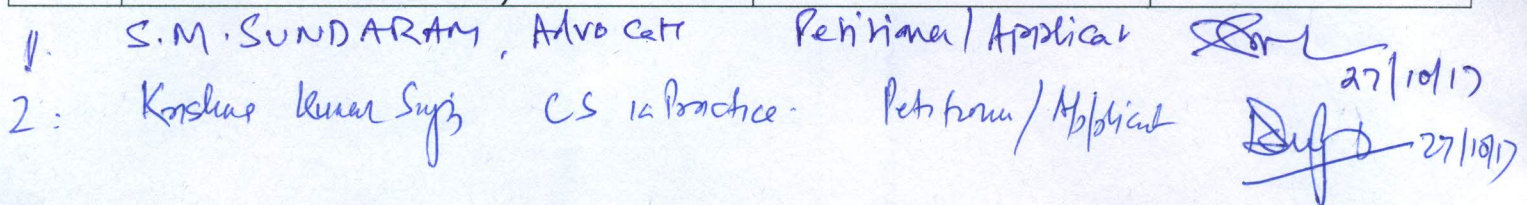 1. S.M. SUNDARAM, Advocate Petitioner/Applicant 27/10/17
2: Krishna Kumar CS in Practice. Petitioner/Applicant 27/10/17